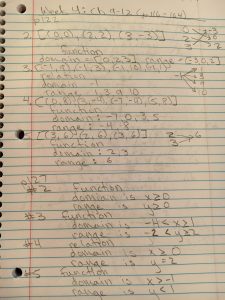 Week 4: Ch. 9-12 (p.116-164)
p122
2. [(0,0), (2,2), (3,-3)]
function
domain = [0,2,3] range = [-3,0,2]
relation
domain -1
range 1,3,9,10
4. [(0,8) (3,-4) (-7,-0) (5,8)]
function
domain: -7,0,3,5
range: -4,8
[(3,6) (2,6) (3,6)]
function
domain: 2,3
range: 6
p127
#2 function
domain is x≥0
range is y≥0
#3 function
domain is -4<x>1
range is -2<y≥2
#4 relation
domain is x≥0
range is y=2
#5 function
domain is x>-1
range is y<1